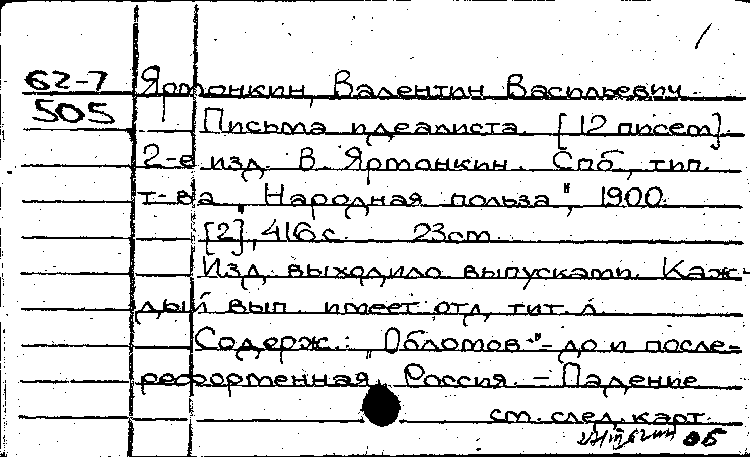 62-7 Ярмонкин, Валентин Васильевич.
505 Письма идеалиста. [12 писем].
2-е изд. В. Ярмонкин. Спб, тип.
т-ва „Народная польза", 1900.
[2], 416 с. 23 см.
Изд. выходило выпусками. Каж-
дый вып. имеет отд. тит. л.
Содерж.: „Обломов"-до и после-
реформенная Россия. - Падение
см. след. карт.